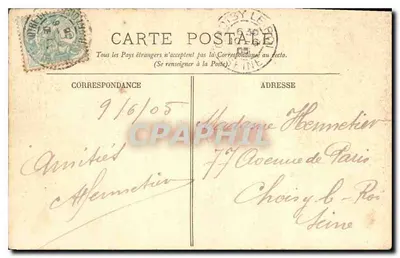 CHOISY LE ROI
SEINE
CARTE POSTALE
Tous les Pays étrangers n'acceptent pas la Correspondance au recto.
(Se renseigner à la Poste).
CORRESPONDANCE
ADRESSE
9/6/05
Amitiés
Madame Hennetier
77 Avenue de Paris
Choisy le Roi
Seine
CPArama.com